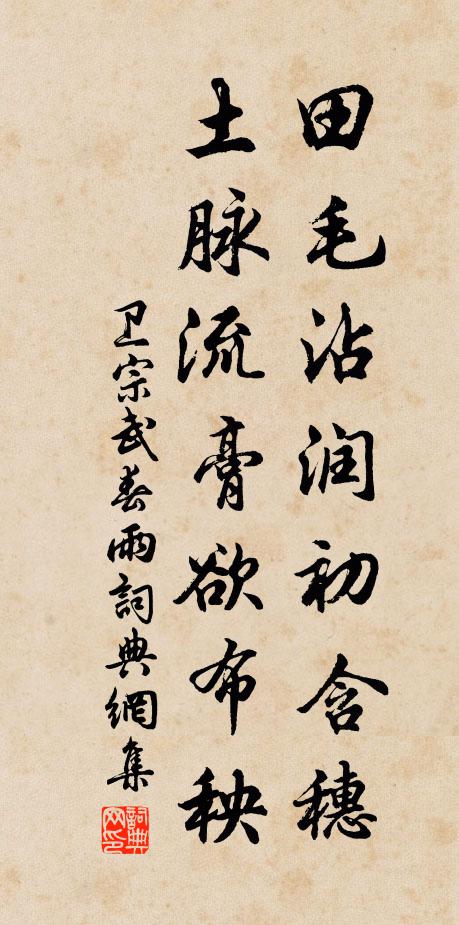 田毛沾润初含穗
土脉流膏欲布秧
卫宗武春雨詞典網集
詞典网印